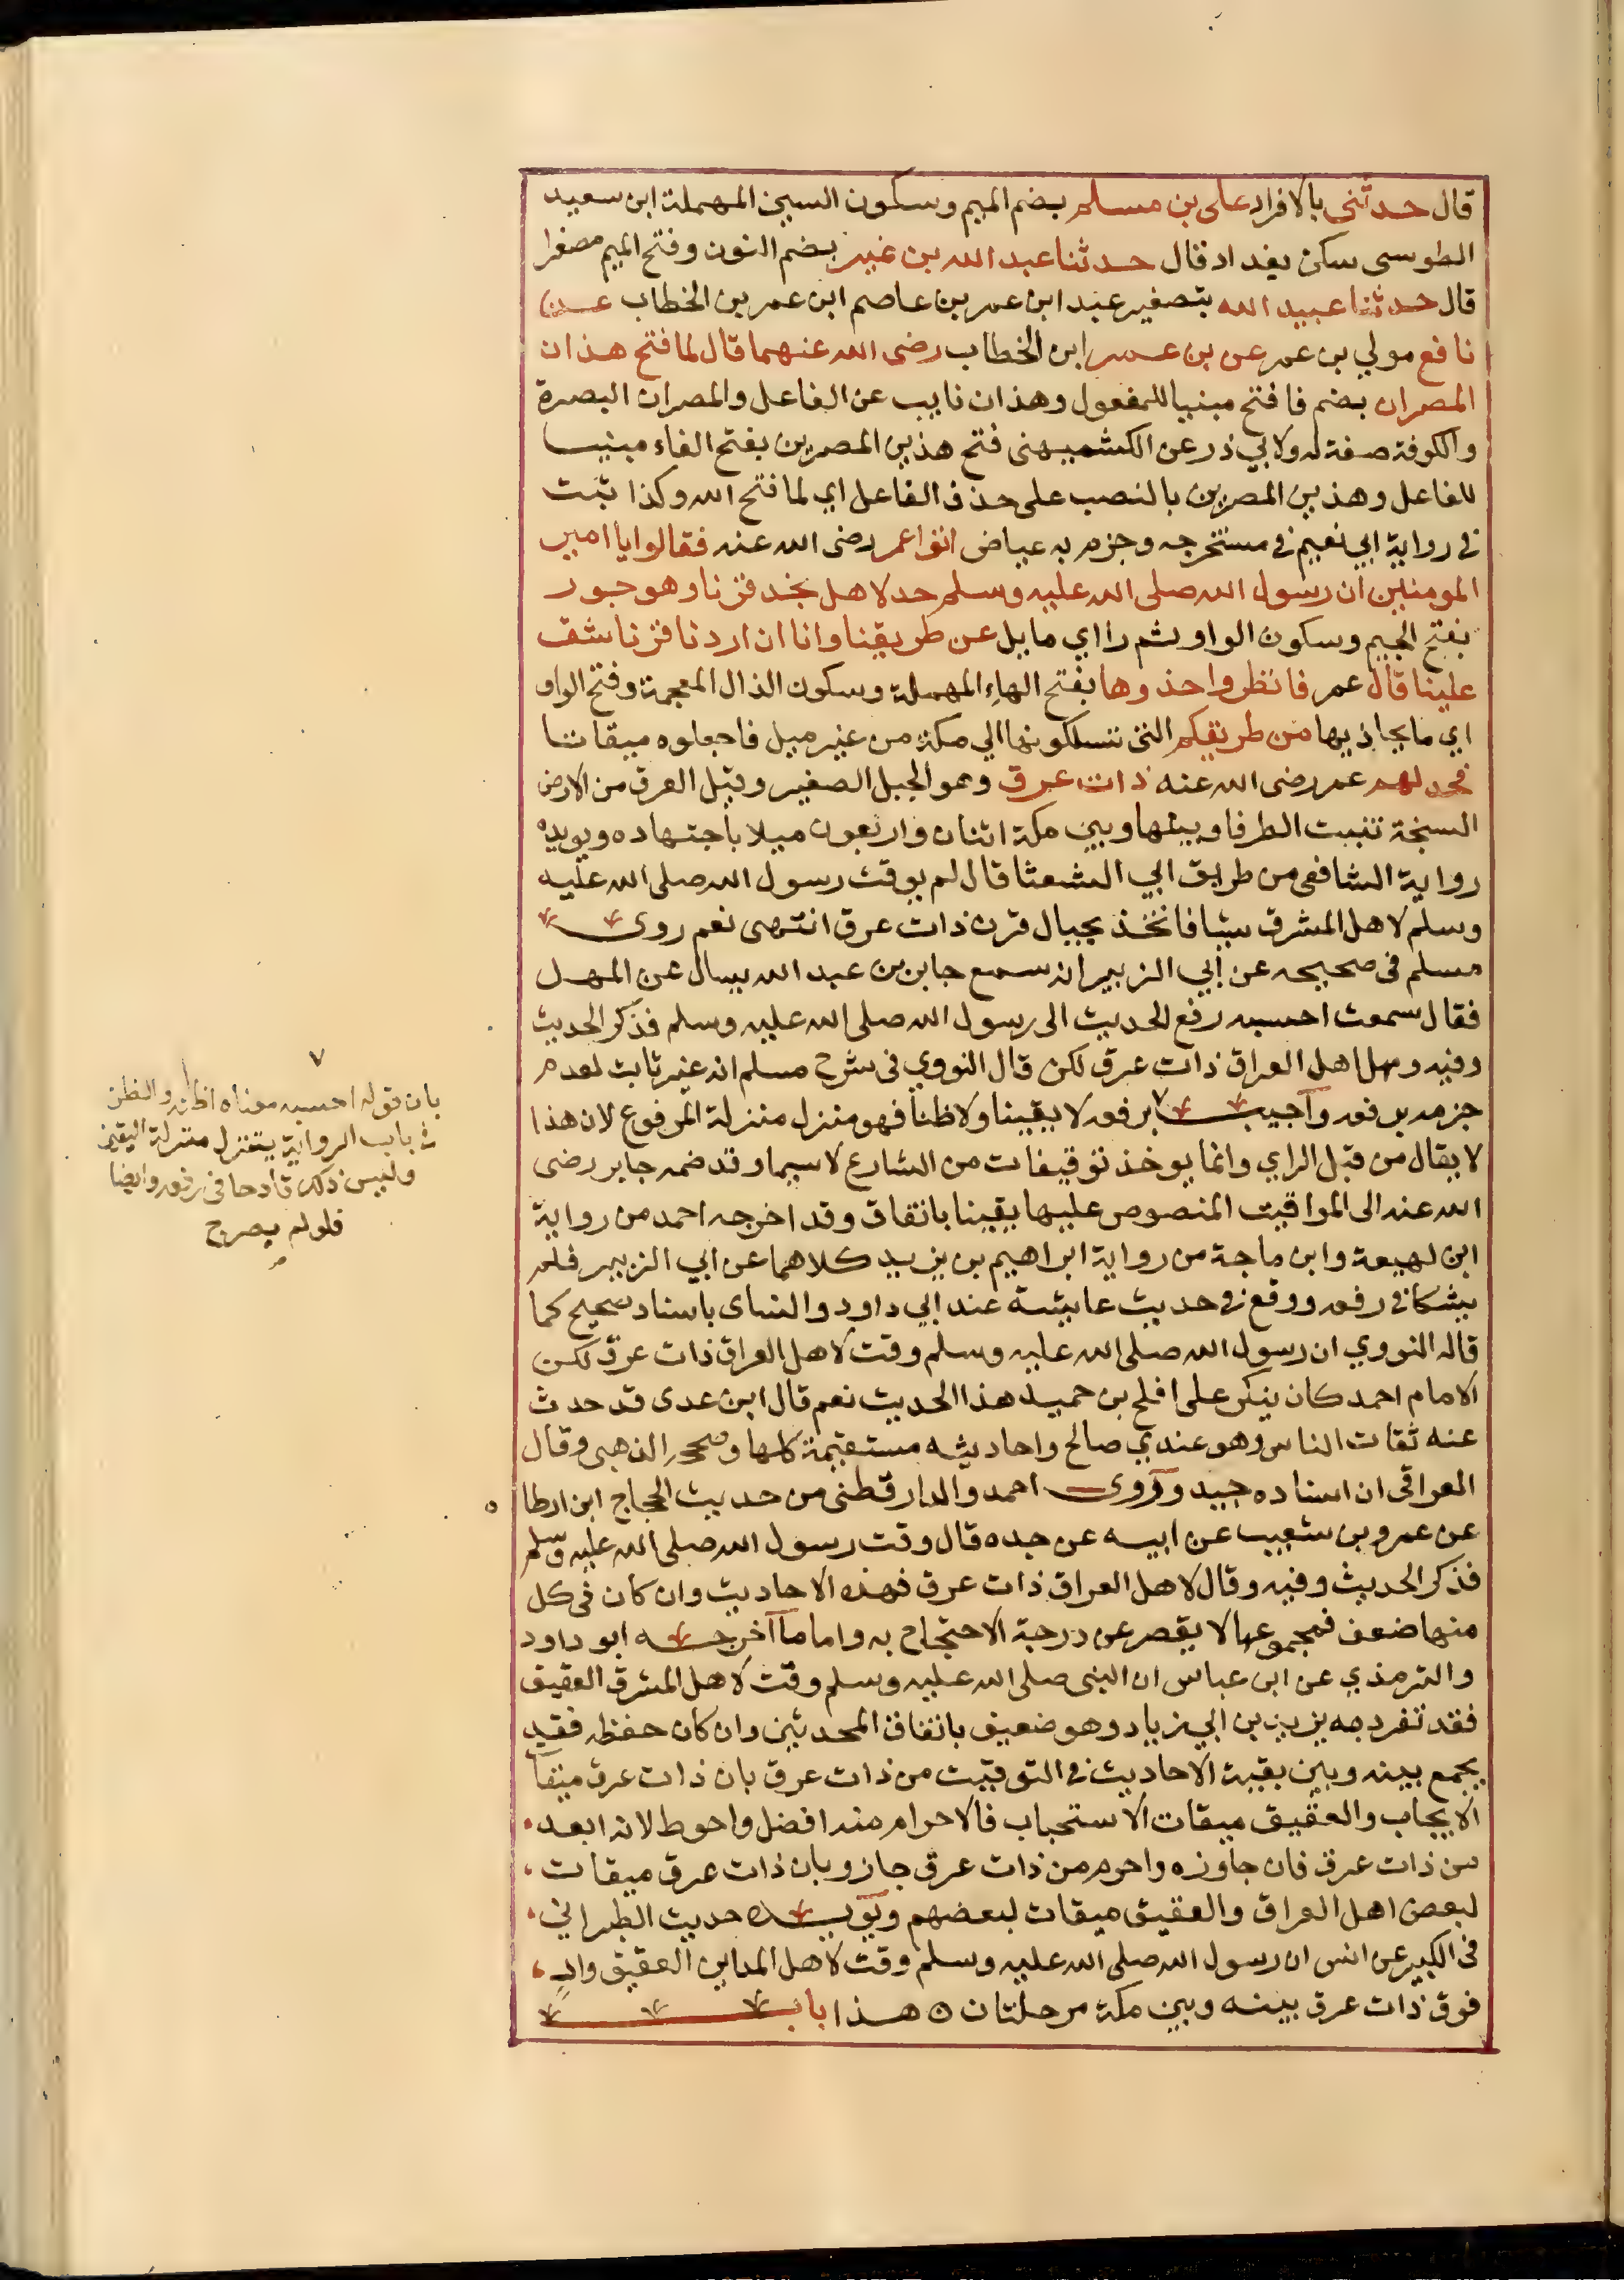 قال حدثنى بالافراد على بن مسلم بضم الميم وسكون السين المهملة ابن سعيد
الطوسى سكن بغداد قال حدثنا عبد الله بن نمير بضم النون وفتح الميم مصغرا
قال حدثنا عبيد الله بتصغير عبد ابن عمر بن عاصم ابن عمر بن الخطاب عن
نافع مولي بن عمر عن بن عمر ابن الخطاب رضى الله عنهما قال لما فتح هذان
المصران بضم فا فتح مبنيا للمفعول وهذان نايب عن الفاعل والمصران البصرة
والكوفة صفة له ولابي ذر عن الكشميهنى فتح هذين المصرين بفتح الفاء مبنيا
للفاعل وهذين المصرين بالنصب على حذف الفاعل اي لما فتح الله وكذا ثبت
في رواية ابي نعيم في مستخرجه وجزم به عياض اتوا عمر رضى الله عنه فقالوا يا امير
المومنين ان رسول الله صلى الله عليه وسلم حد لاهل نجد قرنا وهو جور
بفتح الجيم وسكون الواو ثم را اي مايل عن طريقنا وانا ان اردنا قرنا شق
علينا قال عمر فانظروا حذوها بفتح الهاء المهملة وسكون الذال المعجمة وفتح الواو
اي ما يحاذيها من طريقكم التى تسلكونها الي مكة من غير ميل فاجعلوه ميقاتا
فحد لهم عمر رضى الله عنه ذات عرق وهو الجبل الصغير وقيل العرق من الارض
السبخة تنبت الطرفا وبينها وبين مكة اثنان واربعون ميلا باجتهاده ويويده
رواية الشافعى من طريق ابي الشعثا قال لم يوقت رسول الله صلى الله عليه
وسلم لاهل المشرق شيا فاتخذ بحيال قرن ذات عرق انتهى نعم روى
مسلم فى صحيحه عن أبي الزبير انه سمع جابر بن عبد الله يسال عن المهل
فقال سمعت احسبه رفع الحديث الى رسول الله صلى الله عليه وسلم فذكر الحديث
وفيه ومهل اهل العراق ذات عرق لكن قال النووي فى شرح مسلم انه غير ثابت لعدم
جزمه برفعه وأجيب ٧ برفعه لا يقينا ولا ظنا فهو منزل منزلة المرفوع لان هذا
لا يقال من قبل الراي وانما يوخذ توقيفات من الشارع لا سيما وقد ضمه جابر رضى
الله عنه الى المواقيت المنصوص عليها يقينا باتفاق وقد اخرجه احمد من رواية
ابن لهيعة وابن ماجة من رواية ابراهيم بن يزيد كلاهما عن ابي الزبير فلم
يشكا في رفعه ووقع في حديث عايشة عند ابي داود والنساى باسناد صحيح كما
قاله النووي ان رسول الله صلى الله عليه وسلم وقت لاهل العراق ذات عرق لكن
الامام احمد كان ينكر على افلح بن حميد هذا الحديث نعم قال ابن عدى قد حدث
عنه ثقات الناس وهو عندي صالح واحاديثه مستقيمة كلها وصححه الذهبى وقال
العراقى ان اسناده جيد وروى احمد والدارقطنى من حديث الحجاج ابن ارطا
عن عمرو بن شعيب عن ابيه عن جده قال وقت رسول الله صلى الله عليه وسلم
فذكر الحديث وفيه وقال لاهل العراق ذات عرق فهذه الاحاديث وان كان فى كل
منها ضعف فمجموعها لا يقصر عن درجة الاحتجاج به واما ما أخرجه ابو داود
والترمذي عن ابن عباس ان النبى صلى الله عليه وسلم وقت لاهل المشرق العقيق
فقد تفرد به يزيد بن ابي زياد وهو ضعيف باتفاق المحدثين وان كان حفظه فقد
يجمع بينه وبين بقية الاحاديث في التوقيت من ذات عرق بان ذات عرق ميقا
الايجاب والعقيق ميقات الاستحباب فالاحرام منه افضل واحوط لانه ابعد
من ذات عرق فان جاوزه واحرم من ذات عرق جاز وبان ذات عرق ميقات
لبعض اهل العراق والعقيق ميقات لبعضهم ويويده حديث الطبراني
فى الكبير عن انس ان رسول الله صلى الله عليه وسلم وقت لاهل المداين العقيق واد
فوق ذات عرق بينه وبين مكة مرحلتان ه هذا باب
٧
بان قوله احسبه معناه اظنه والظن
في باب الرواية يتنزل منزلة اليقين
وليس ذلك قادحا فى رفعه وايضا
فلو لم يصرح